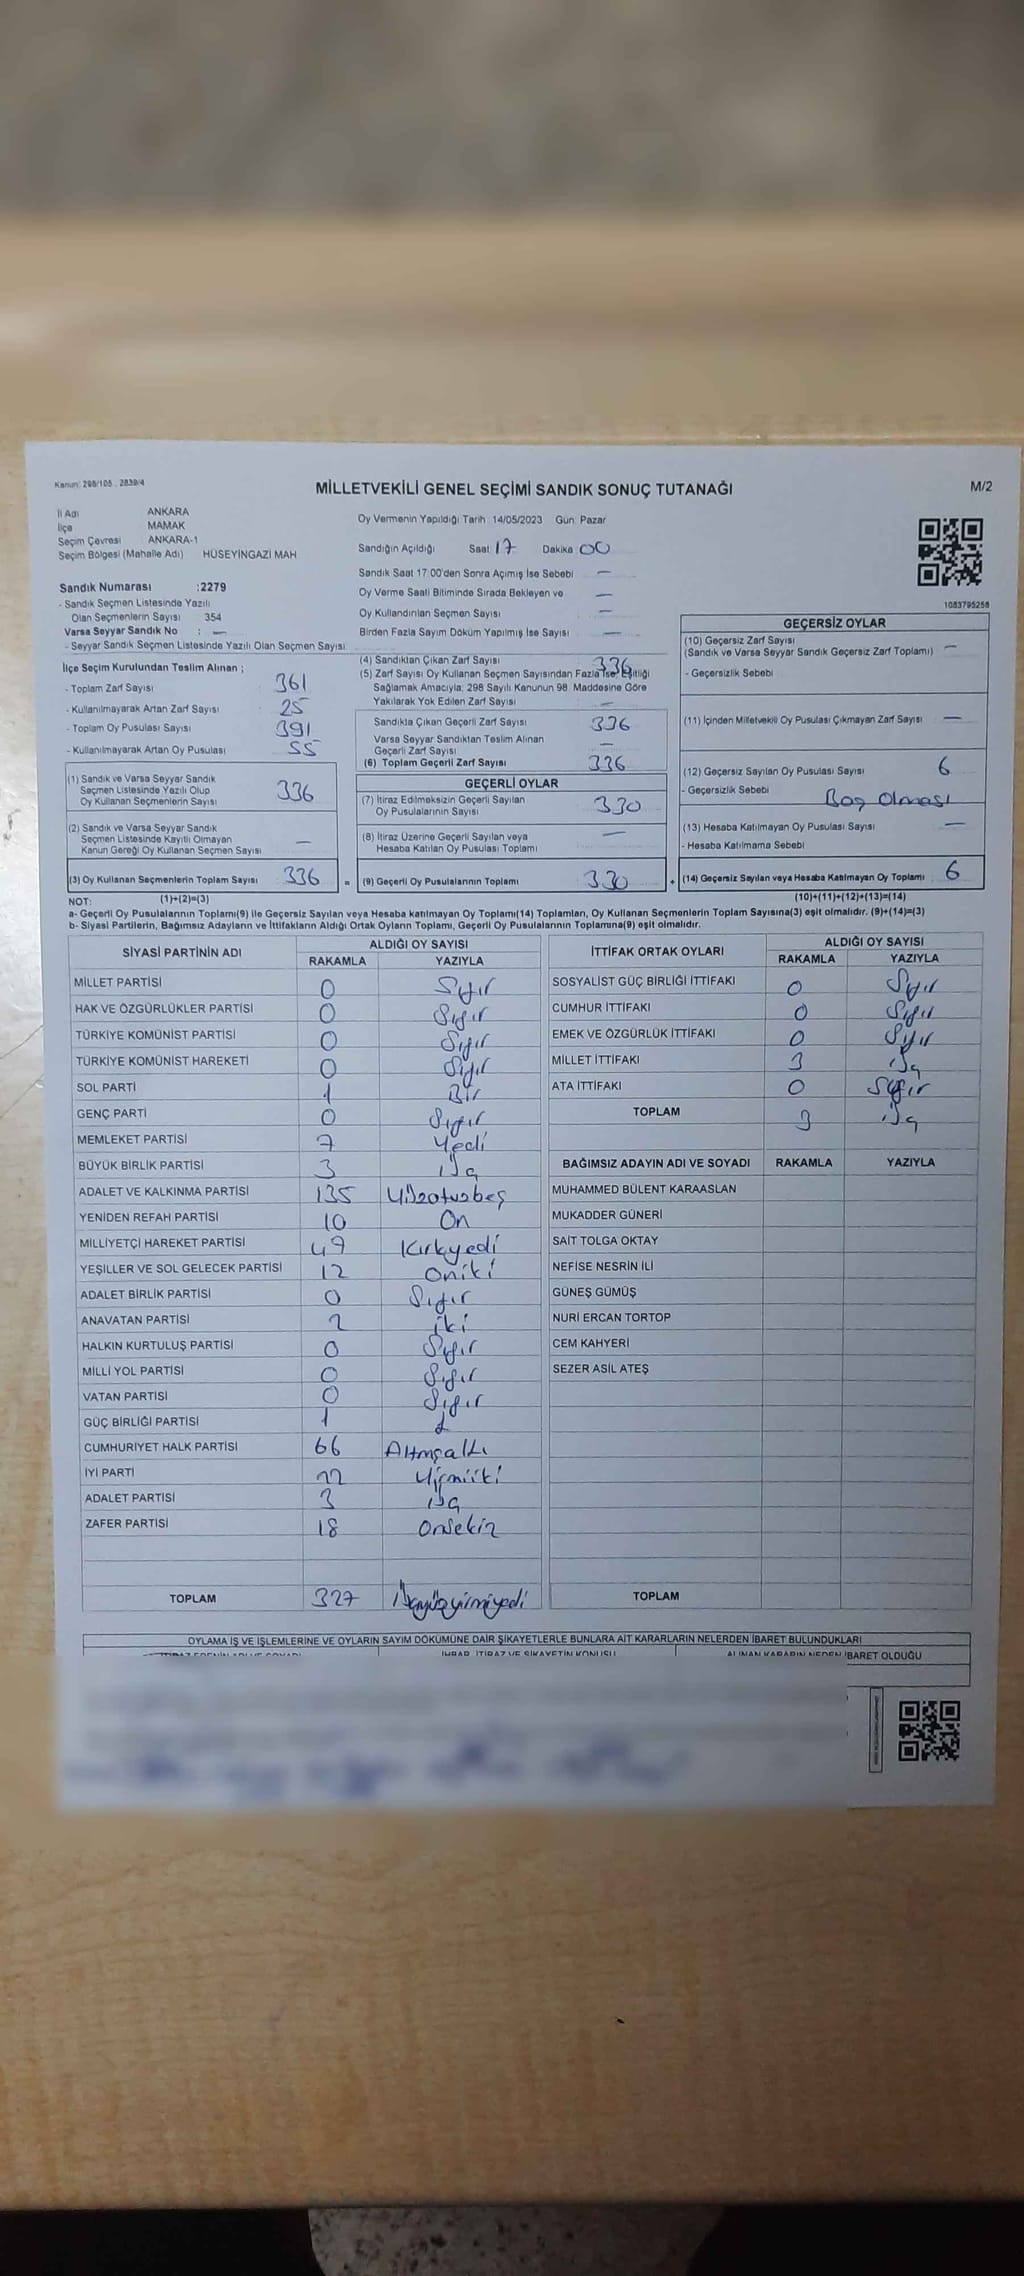 Kanun: 298/105 , 2839/4
MİLLETVEKİLİ GENEL SEÇİMİ SANDIK SONUÇ TUTANAĞI
M/2
İl Adı ANKARA
İlçe MAMAK
Seçim Çevresi ANKARA-1
Seçim Bölgesi (Mahalle Adı) HÜSEYİNGAZİ MAH
Sandık Numarası :2279
- Sandık Seçmen Listesinde Yazılı
Olan Seçmenlerin Sayısı 354
Varsa Seyyar Sandık No : —
- Seyyar Sandık Seçmen Listesinde Yazılı Olan Seçmen Sayısı:
İlçe Seçim Kurulundan Teslim Alınan ;
- Toplam Zarf Sayısı 361
- Kullanılmayarak Artan Zarf Sayısı 25
- Toplam Oy Pusulası Sayısı 391
- Kullanılmayarak Artan Oy Pusulası 55
(1) Sandık ve Varsa Seyyar Sandık
Seçmen Listesinde Yazılı Olup
Oy Kullanan Seçmenlerin Sayısı 336
(2) Sandık ve Varsa Seyyar Sandık
Seçmen Listesinde Kayıtlı Olmayan
Kanun Gereği Oy Kullanan Seçmen Sayısı —
(3) Oy Kullanan Seçmenlerin Toplam Sayısı 336 =
Oy Vermenin Yapıldığı Tarih :14/05/2023 Gün: Pazar
Sandığın Açıldığı Saat 17 Dakika 00
Sandık Saat 17:00'den Sonra Açımış İse Sebebi —
Oy Verme Saati Bitiminde Sırada Bekleyen ve —
Oy Kullandırılan Seçmen Sayısı —
Birden Fazla Sayım Döküm Yapılmış İse Sayısı —
(4) Sandıktan Çıkan Zarf Sayısı 336
(5) Zarf Sayısı Oy Kullanan Seçmen Sayısından Fazla İse, Eşitliği
Sağlamak Amacıyla; 298 Sayılı Kanunun 98. Maddesine Göre
Yakılarak Yok Edilen Zarf Sayısı —
Sandıkta Çıkan Geçerli Zarf Sayısı 336
Varsa Seyyar Sandıktan Teslim Alınan
Geçerli Zarf Sayısı —
(6) Toplam Geçerli Zarf Sayısı 336
GEÇERLİ OYLAR
(7) İtiraz Edilmeksizin Geçerli Sayılan
Oy Pusulalarının Sayısı 330
(8) İtiraz Üzerine Geçerli Sayılan veya
Hesaba Katılan Oy Pusulası Toplamı —
(9) Geçerli Oy Pusulalarının Toplamı 330 +
1083795258
GEÇERSİZ OYLAR
(10) Geçersiz Zarf Sayısı
(Sandık ve Varsa Seyyar Sandık Geçersiz Zarf Toplamı) —
- Geçersizlik Sebebi
(11) İçinden Milletvekili Oy Pusulası Çıkmayan Zarf Sayısı —
(12) Geçersiz Sayılan Oy Pusulası Sayısı 6
- Geçersizlik Sebebi Boş Olması
(13) Hesaba Katılmayan Oy Pusulası Sayısı —
- Hesaba Katılmama Sebebi
(14) Geçersiz Sayılan veya Hesaba Katılmayan Oy Toplamı 6
NOT: (1)+(2)=(3) (10)+(11)+(12)+(13)=(14)
a- Geçerli Oy Pusulalarının Toplamı(9) ile Geçersiz Sayılan veya Hesaba katılmayan Oy Toplamı(14) Toplamları, Oy Kullanan Seçmenlerin Toplam Sayısına(3) eşit olmalıdır. (9)+(14)=(3)
b- Siyasi Partilerin, Bağımsız Adayların ve İttifakların Aldığı Ortak Oyların Toplamı, Geçerli Oy Pusulalarının Toplamına(9) eşit olmalıdır.
SİYASİ PARTİNİN ADI ALDIĞI OY SAYISI
RAKAMLA YAZIYLA
MİLLET PARTİSİ 0 Sıfır
HAK VE ÖZGÜRLÜKLER PARTİSİ 0 Sıfır
TÜRKİYE KOMÜNİST PARTİSİ 0 Sıfır
TÜRKİYE KOMÜNİST HAREKETİ 0 Sıfır
SOL PARTİ 1 Bir
GENÇ PARTİ 0 Sıfır
MEMLEKET PARTİSİ 7 Yedi
BÜYÜK BİRLİK PARTİSİ 3 üç
ADALET VE KALKINMA PARTİSİ 135 Yüzotuzbeş
YENİDEN REFAH PARTİSİ 10 On
MİLLİYETÇİ HAREKET PARTİSİ 47 Kırkyedi
YEŞİLLER VE SOL GELECEK PARTİSİ 12 Oniki
ADALET BİRLİK PARTİSİ 0 Sıfır
ANAVATAN PARTİSİ 2 iki
HALKIN KURTULUŞ PARTİSİ 0 Sıfır
MİLLİ YOL PARTİSİ 0 Sıfır
VATAN PARTİSİ 0 Sıfır
GÜÇ BİRLİĞİ PARTİSİ 1
CUMHURİYET HALK PARTİSİ 66 Altmışaltı
İYİ PARTİ 22 Yirmiiki
ADALET PARTİSİ 3 üç
ZAFER PARTİSİ 18 Onsekiz
TOPLAM 327 Üçyüzyirmiyedi
İTTİFAK ORTAK OYLARI ALDIĞI OY SAYISI
RAKAMLA YAZIYLA
SOSYALİST GÜÇ BİRLİĞİ İTTİFAKI 0 Sıfır
CUMHUR İTTİFAKI 0 Sıfır
EMEK VE ÖZGÜRLÜK İTTİFAKI 0 Sıfır
MİLLET İTTİFAKI 3 üç
ATA İTTİFAKI 0 Sıfır
TOPLAM 3 üç
BAĞIMSIZ ADAYIN ADI VE SOYADI RAKAMLA YAZIYLA
MUHAMMED BÜLENT KARAASLAN
MUKADDER GÜNERİ
SAİT TOLGA OKTAY
NEFİSE NESRİN İLİ
GÜNEŞ GÜMÜŞ
NURİ ERCAN TORTOP
CEM KAHYERİ
SEZER ASİL ATEŞ
TOPLAM
OYLAMA İŞ VE İŞLEMLERİNE VE OYLARIN SAYIM DÖKÜMÜNE DAİR ŞİKAYETLERLE BUNLARA AİT KARARLARIN NELERDEN İBARET BULUNDUKLARI
İHBAR, İTİRAZ VE ŞİKAYETİN KONUSU ALINAN KARARIN NEDEN İBARET OLDUĞU